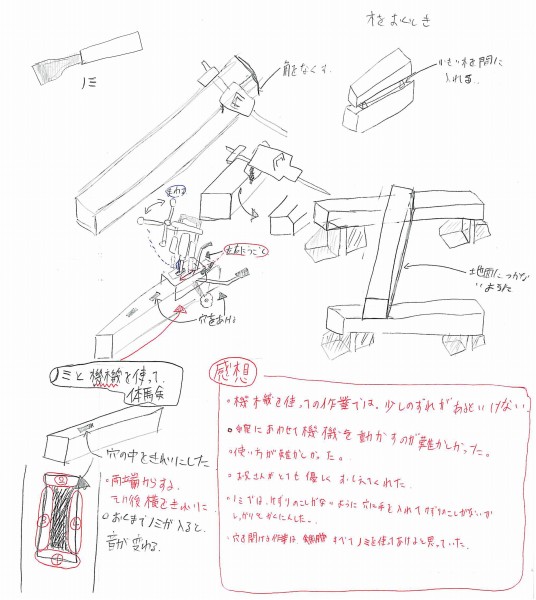 木をおくとき
小さい木を間に
入れる。
ノミ
角をなくす。
まわる
左右にうごく
穴をあける
土地面につかな
いように
ノミと機械を使って、
体馬矣
穴の中をきれいにした
・両端からする。
その後横をきれいに
・おくまでノミが入ると、
音が変わる。
② ③ ④ ①
感想
・機械を使っての作業では、少しのずれがあるといけない
・線にあわせて機械を動かすのが難しかった。
・使い方が難しかった。
・お兄さんがとても優しくおしえてくれた。
・ノミでは、けずりのこしがないように穴に手を入れてけずりのこしがないか
しっかりとかくにんした。
・穴を開ける作業は、すべてノミを使ってあけると思っていた。